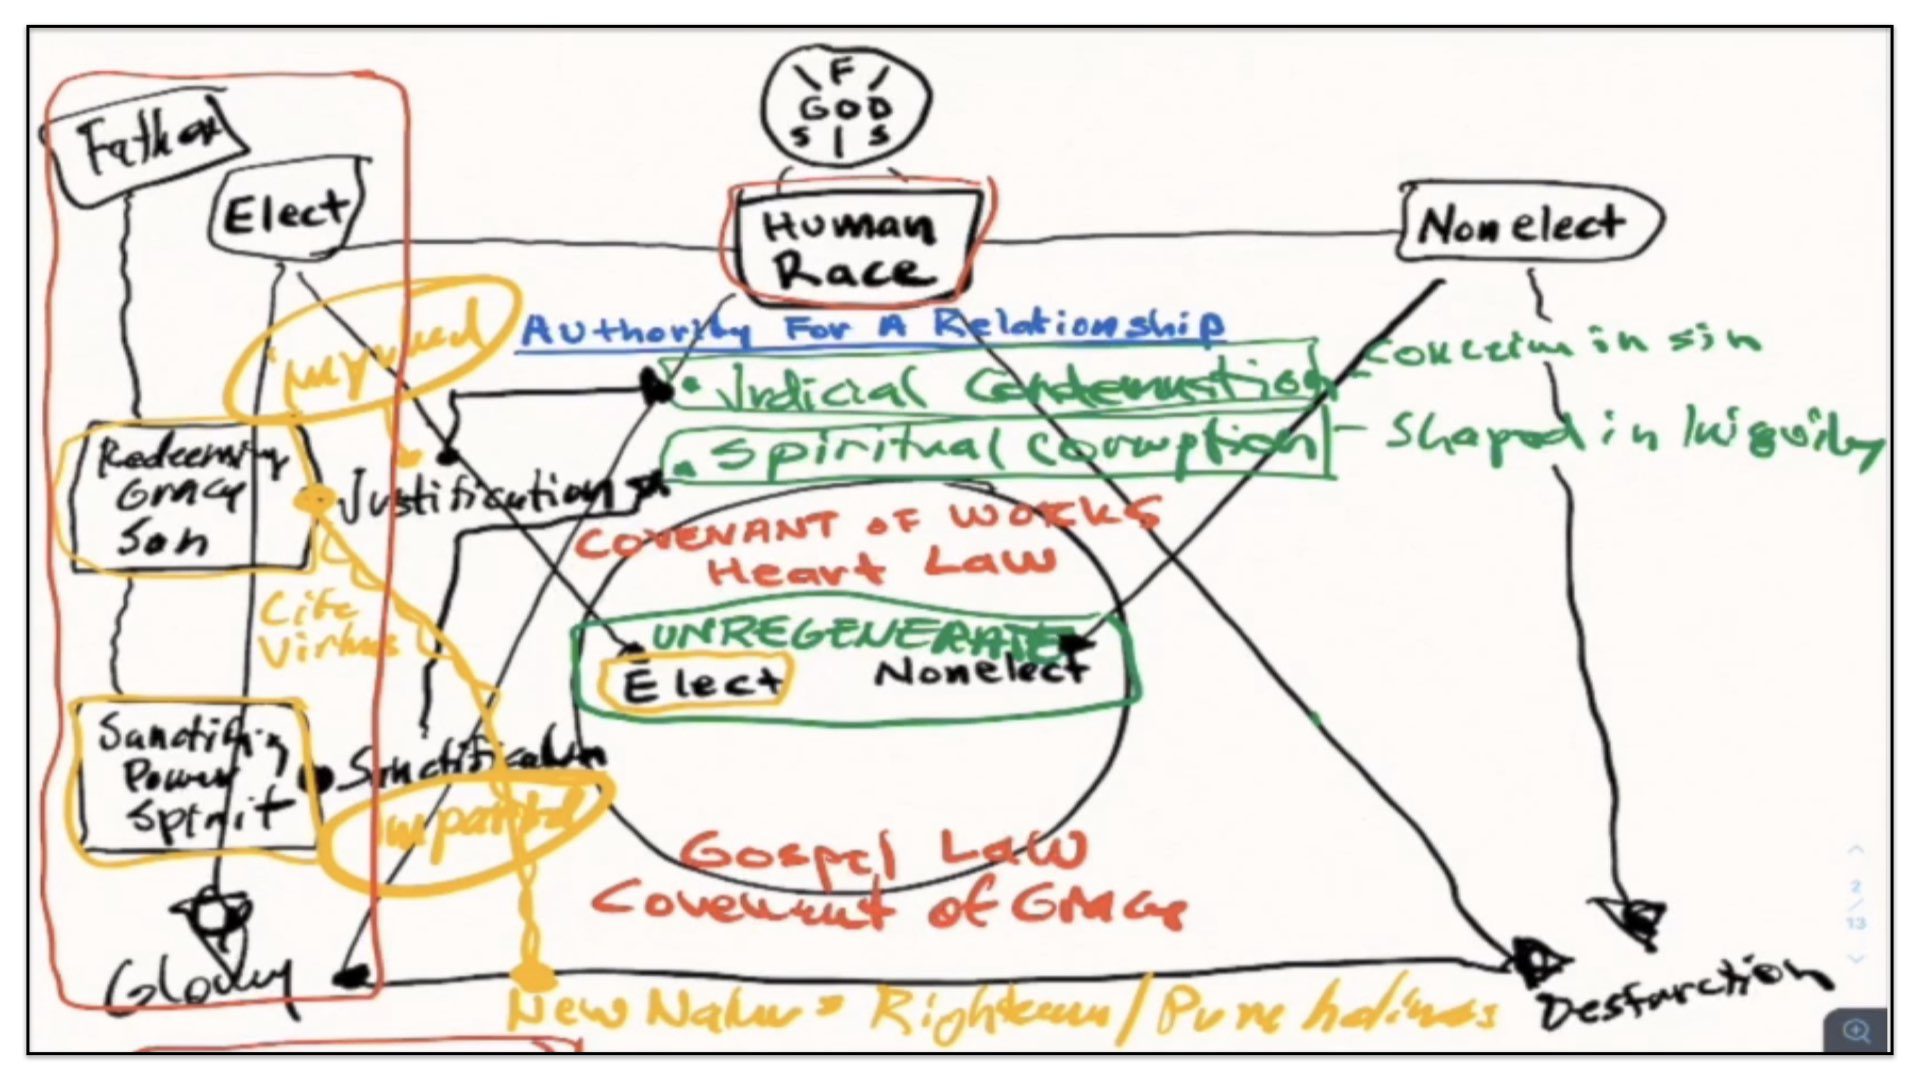 F
GOD
S I S
Father
Elect
Human
Race
Nonelect
Authority For A Relationship
Judicial Condemnation
in sin
Spiritual Corruption - Shaped in
Redeeming
Gracy
Son
Justification
COVENANT OF WORKS
Heart Law
Life
Virtues
UNREGENERATE
Elect
Nonelect
Sanctifying
Power
Spirit
Sanctification
Imparted
Gospel Law
Covenant of Grace
Glory
New Nature = Righteous / Pure holiness
Desturction
2
/
13